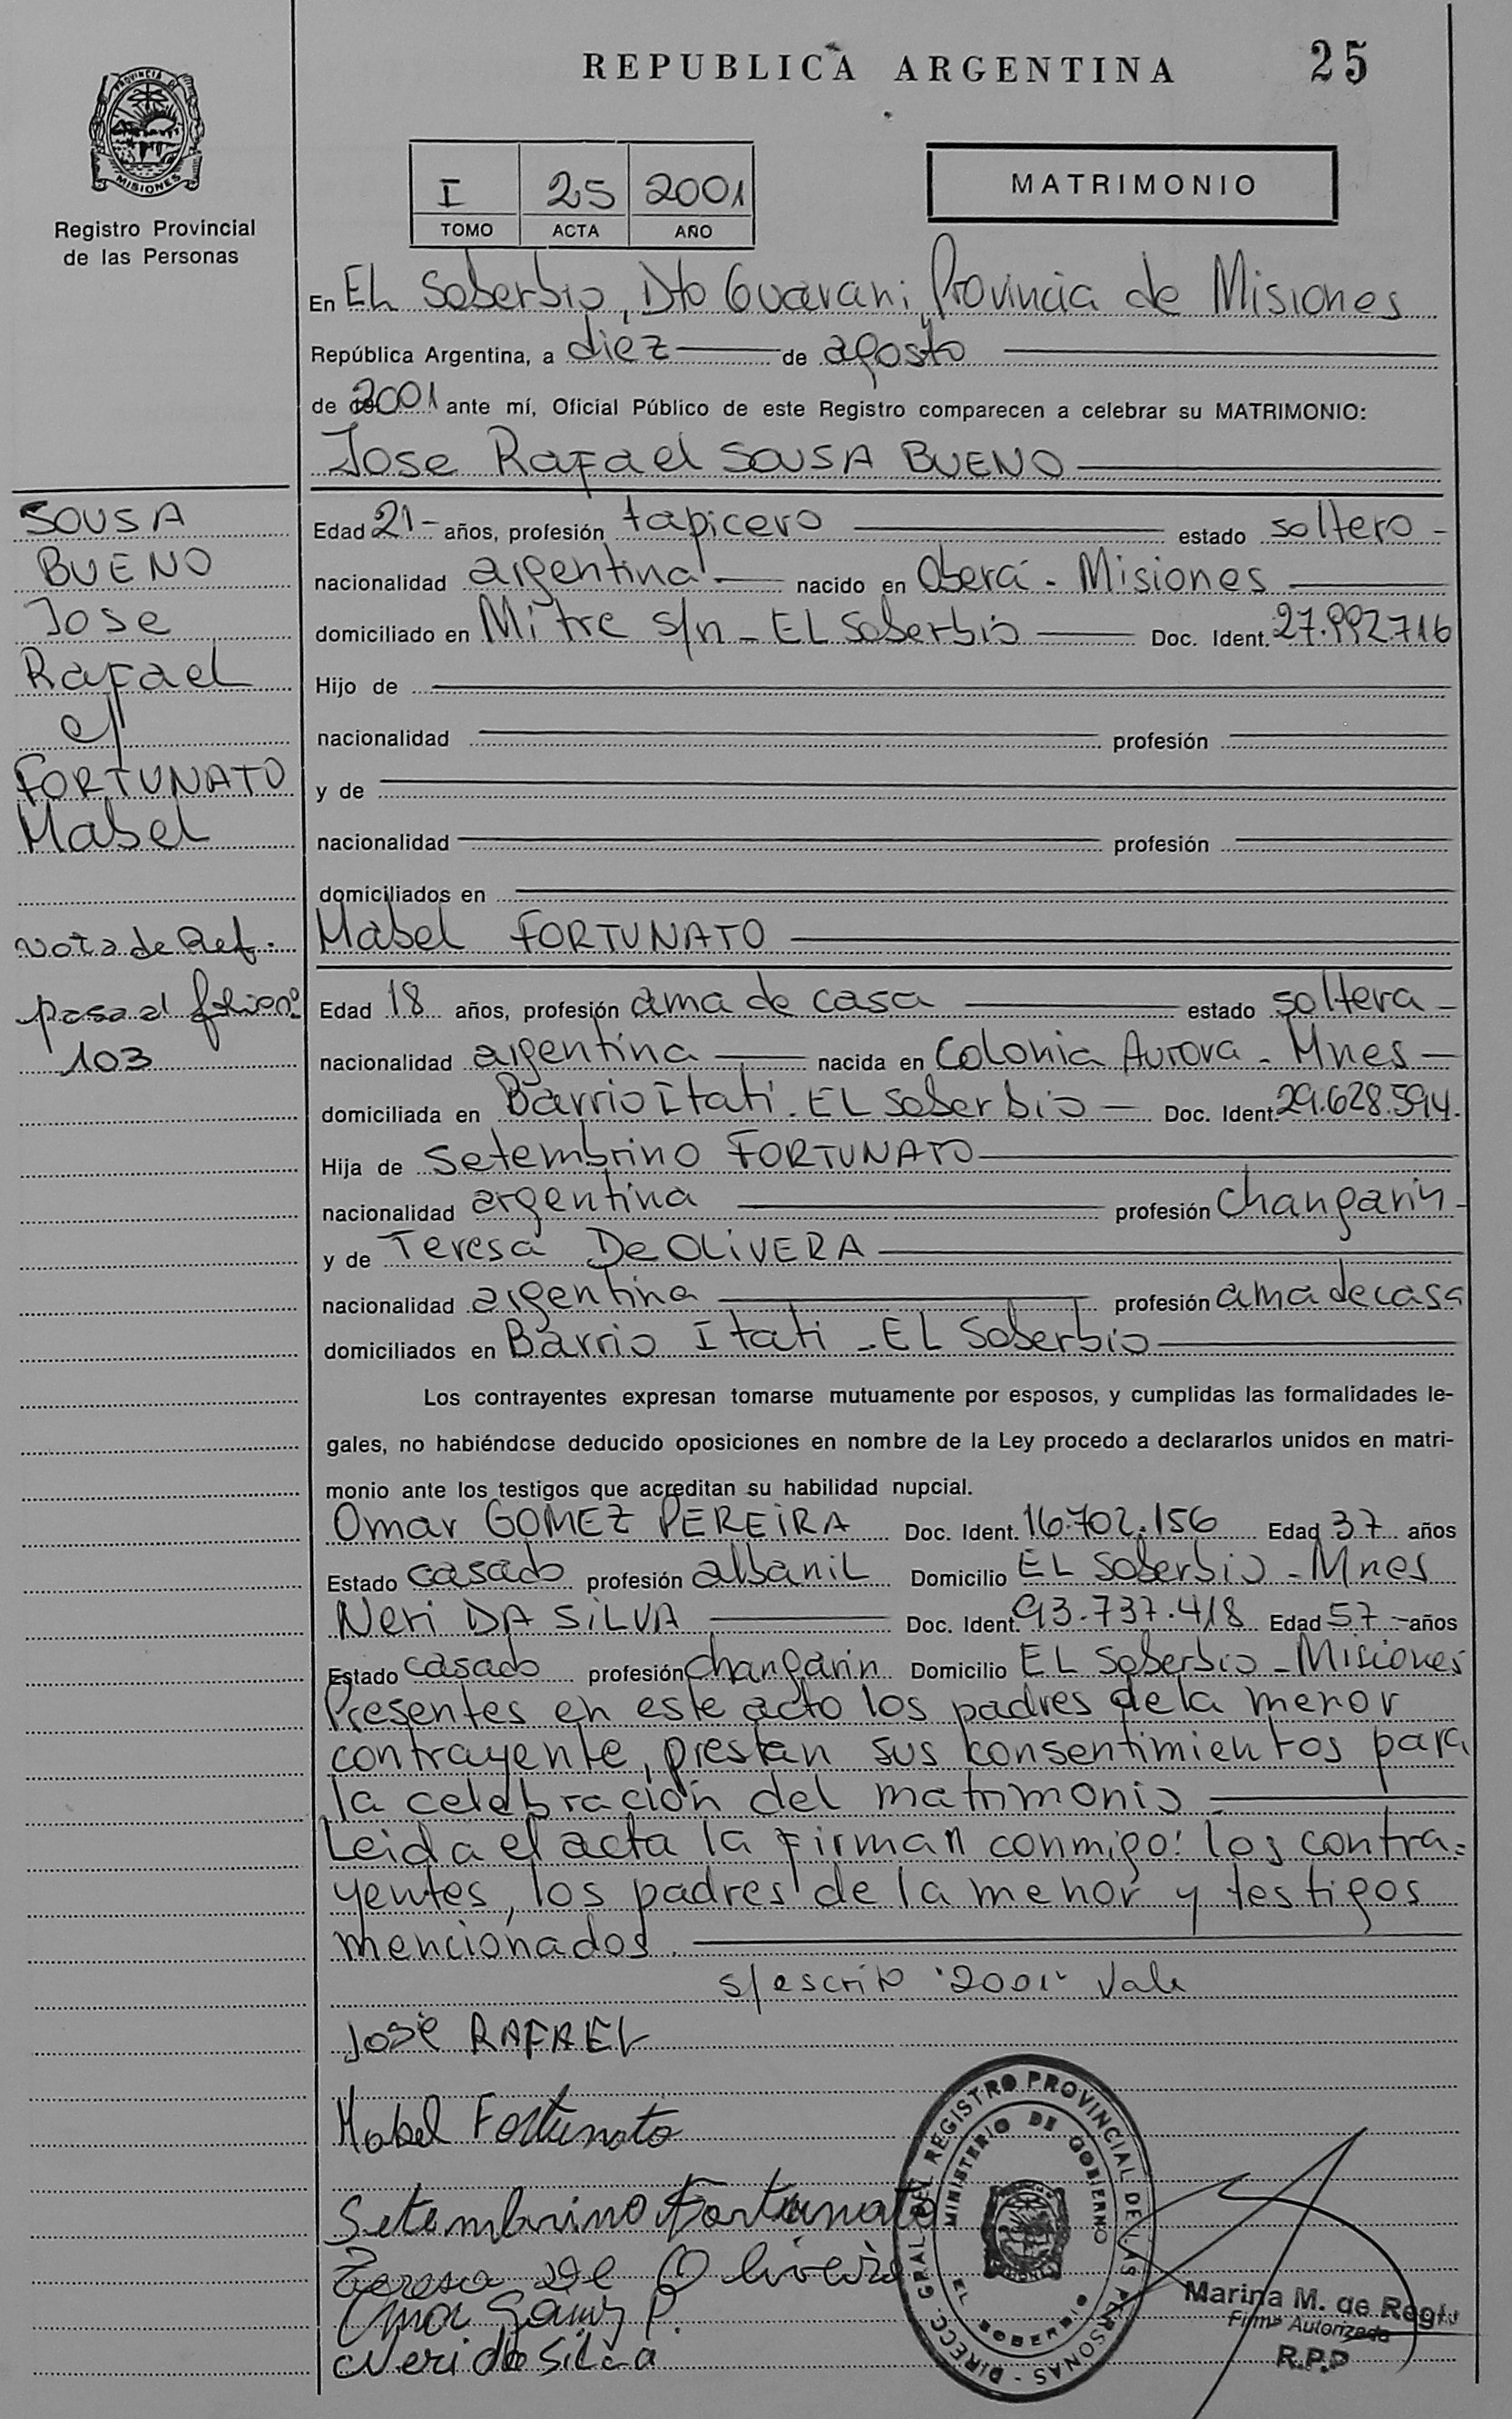 REPUBLICA ARGENTINA 25
PROVINCIA DE
MISIONES
Registro Provincial
de las Personas
I 25 2001
TOMO ACTA AÑO
MATRIMONIO
En EL Soberbio, Dto Guarani, Provincia de Misiones
República Argentina, a diez de agosto
de 2001 ante mí, Oficial Público de este Registro comparecen a celebrar su MATRIMONIO:
Jose Rafael SOUSA BUENO
SOUSA
BUENO
Jose
Rafael
c/
FORTUNATO
Mabel
Nota de Ref.
pasa al folio nº
103
Edad 21- años, profesión tapicero estado soltero -
nacionalidad argentina nacido en Oberá - Misiones
domiciliado en Mitre s/n - EL Soberbio Doc. Ident. 27.992.716
Hijo de
nacionalidad profesión
y de
nacionalidad profesión
domiciliados en
Mabel FORTUNATO
Edad 18 años, profesión ama de casa estado soltera -
nacionalidad argentina nacida en Colonia Aurora - Mnes -
domiciliada en Barrio Itati - EL Soberbio - Doc. Ident. 29.628.594.
Hija de Setembrino FORTUNATO
nacionalidad argentina profesión changarin -
y de Teresa De OLIVERA
nacionalidad argentina profesión ama de casa
domiciliados en Barrio Itati - EL Soberbio
Los contrayentes expresan tomarse mutuamente por esposos, y cumplidas las formalidades le-
gales, no habiéndose deducido oposiciones en nombre de la Ley procedo a declararlos unidos en matri-
monio ante los testigos que acreditan su habilidad nupcial.
Omar GOMEZ PEREIRA Doc. Ident. 16.702.156 Edad 37 años
Estado casado profesión albanil Domicilio EL Soberbio - Mnes
Neri DA SILVA Doc. Ident. 93.737.418 Edad 57 - años
Estado casado profesión changarin Domicilio EL Soberbio - Misiones
Presentes en este acto los padres de la menor
contrayente, prestan sus consentimientos para
la celebración del matrimonio
Leida el acta la firman conmigo: los contra-
yentes, los padres de la menor y testigos
mencionados.
s/escrito "2001" Vale
JOSÉ RAFAEL
Mabel Fortunato
Setembrino Fortunato
Teresa De Oliveira
Omar Gomez P.
Neri da Silva
DIRECC. GRAL. DEL REGISTRO PROVINCIAL DE LAS PERSONAS
MINISTERIO DE GOBIERNO
EL SOBERBIO
Marina M. de
Firma Autorizada
R.P.P